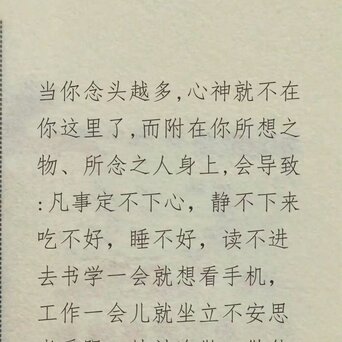 当你念头越多,心神就不在
你这里了,而附在你所想之
物、所念之人身上,会导致
:凡事定不下心，静不下来
吃不好，睡不好，读不进
去书学一会就想看手机，
工作一会儿就坐立不安思